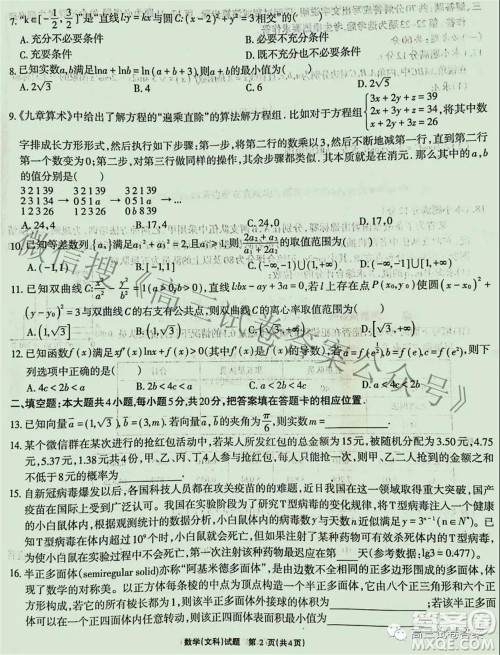 7. “k∈[-1/2, 2/2]”是“直线l:y=kx与圆C:(x-2)²+y²=3相交”的( )
A. 充分不必要条件 B. 必要不充分条件
C. 充要条件 D. 既不充分也不必要条件
8. 已知实数a,b满足lna+lnb=ln(a+b+3),则a+b的最小值为( )
A. 2√3 B. 4 C. 6 D. 2√5
9. 《九章算术》中给出了解方程的“遍乘直除”的算法解方程组. 比如对于方程组 {3x+2y+z=39
2x+3y+z=34
x+2y+3z=26
,将其中数
字排成长方形形式,然后执行如下步骤:第一步,将第二行的数乘以3,然后不断地减第一行,直到第二行
第一个数变为0;第二步,对第三行做同样的操作,其余步骤都类似. 其本质就是在消元. 那么其中的a,b
的值分别是( )
3 2 1 39 3 2 1 39 3 2 1 39
2 3 1 34 → 0 5 1 a → 0 5 1 a →…
1 2 3 26 1 2 3 26 0 b 8 39
A. 24,4 B. 17,4 C. 24,0 D. 17,0
10. 已知等差数列{aₙ}满足
的取值范围为( )
A. (-1,1) B. [-1,1] C. (-∞,-1)∪(1,+∞) D. (-∞,-1]∪[1,+∞)
11. 已知双曲线C:x²/a²-y²/b²=1(a>0,b>0),直线l:bx-ay+3a=0,若l上存在点P(x₀,y₀)使圆(x-x₀)²+
(y-y₀)²=3与双曲线C的右支有公共点,则双曲线C的离心率取值范围为( )
A. (1,√3] B. (1,√3) C. (√3,+∞) D. [√3,+∞)
12. 已知函数f(x)满足xf′(x)lnx+f(x)>0(其中f′(x)是f(x)的导数),若
,b=f(e),c=f(e²),则下
列选项中正确的是( )
A. 4c<2b<a B. 2b<4c<a C. a<2b<4c D. a<4c<2b
二、填空题:本大题共4小题,每小题5分,共20分,把答案填在答题卡的相应位置.
13. 已知向量a=(1,√3),b=(3,m). 若向量a,b的夹角为π/6,则实数m=
14. 某个微信群在某次进行的抢红包活动中,若某人所发红包的总金额为15元,被随机分配为3.50元,4.75
元,5.37元,1.38元共4份,甲、乙、丙、丁4人参与抢红包,每人只能抢一次,则甲、乙二人抢到的金额之和
不低于8元的概率为
15. 自新冠病毒爆发以后,各国科技人员都在攻关疫苗的难题,近日我国在这一领域取得重大突破,国产
疫苗在国际上受到了广泛认可。我国在实验阶段为了研究T型病毒的变化规律,将T型病毒注入一个健康
的小白鼠体内,根据观测统计的数据分析,小白鼠体内的病毒数y与天数n近似满足y=3ⁿ⁻¹(n∈N*). 已
知T型病毒在体内超过10⁸个时,小白鼠就会死亡,但如果注射了某种药物可有效杀死体内的T型病毒,
为使小白鼠在实验过程中不会死亡,第一次注射该种药物最迟应在第 天(参考数据:lg3=0.477).
16. 半正多面体(semiregular solid)亦称“阿基米德多面体”,是由边数不全相同的正多边形围成的多面体,体
现了数学的对称美. 以正方体每条棱的中点为顶点构造一个半正多面体,它由八个正三角形和六个正
方形构成,若它的所有棱长都为1,则该半正多面体外接球的体积为 ;若该半正多面体可以
在一个正四面体内任意转动,则该正四面体体积最小值为
数学(文科)试题 第2页(共4页)
微信搜《高三试卷答案公众号》
高三试卷答案